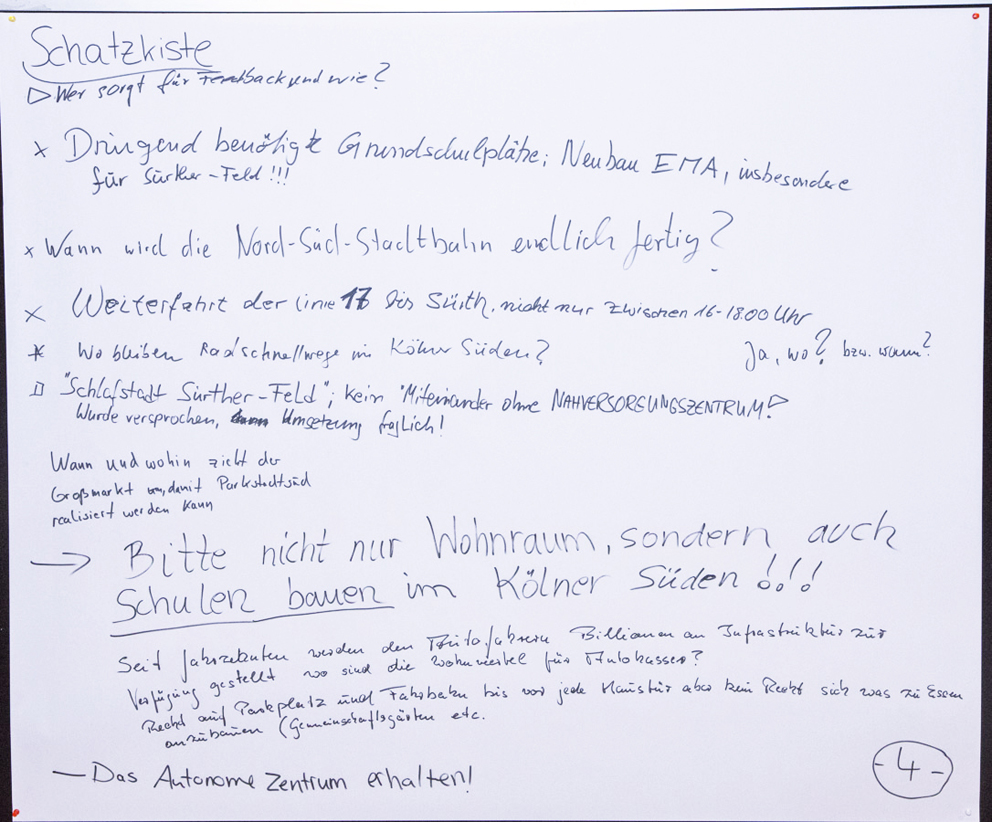 Schatzkiste
▷ Wer sorgt für Feedback und wie?
x Dringend benötigt Grundschulplätze; Neubau EMA, insbesondere
für Sürther-Feld!!!
x Wann wird die Nord-Süd-Stadtbahn endlich fertig?
x Weiterfahrt der Linie 17 bis Sürth, nicht nur zwischen 16-18:00 Uhr
x Wo bleiben Radschnellwege im Kölner Süden?
Ja, wo? bzw. wann?
"Schlafstadt Sürther-Feld"; kein "Miteinander ohne NAHVERSORGUNGSZENTRUM!
Wurde versprochen, Umsetzung fraglich!
Wann und wohin zieht der
Großmarkt um, damit Parkstadtsüd
realisiert werden kann
→ Bitte nicht nur Wohnraum, sondern auch
Schulen bauen im Kölner Süden!!!
Seit Jahrzehnten werden den Autofahrern Billionen an Infrastruktur zur
Verfügung gestellt wo sind die Wohnviertel für Autohasser?
Recht auf Parkplatz und Fahrbahn bis vor jede Haustür aber kein Recht sich was zu Essen
anzubauen (Gemeinschaftsgärten etc.
— Das Autonome Zentrum erhalten!
- 4 -